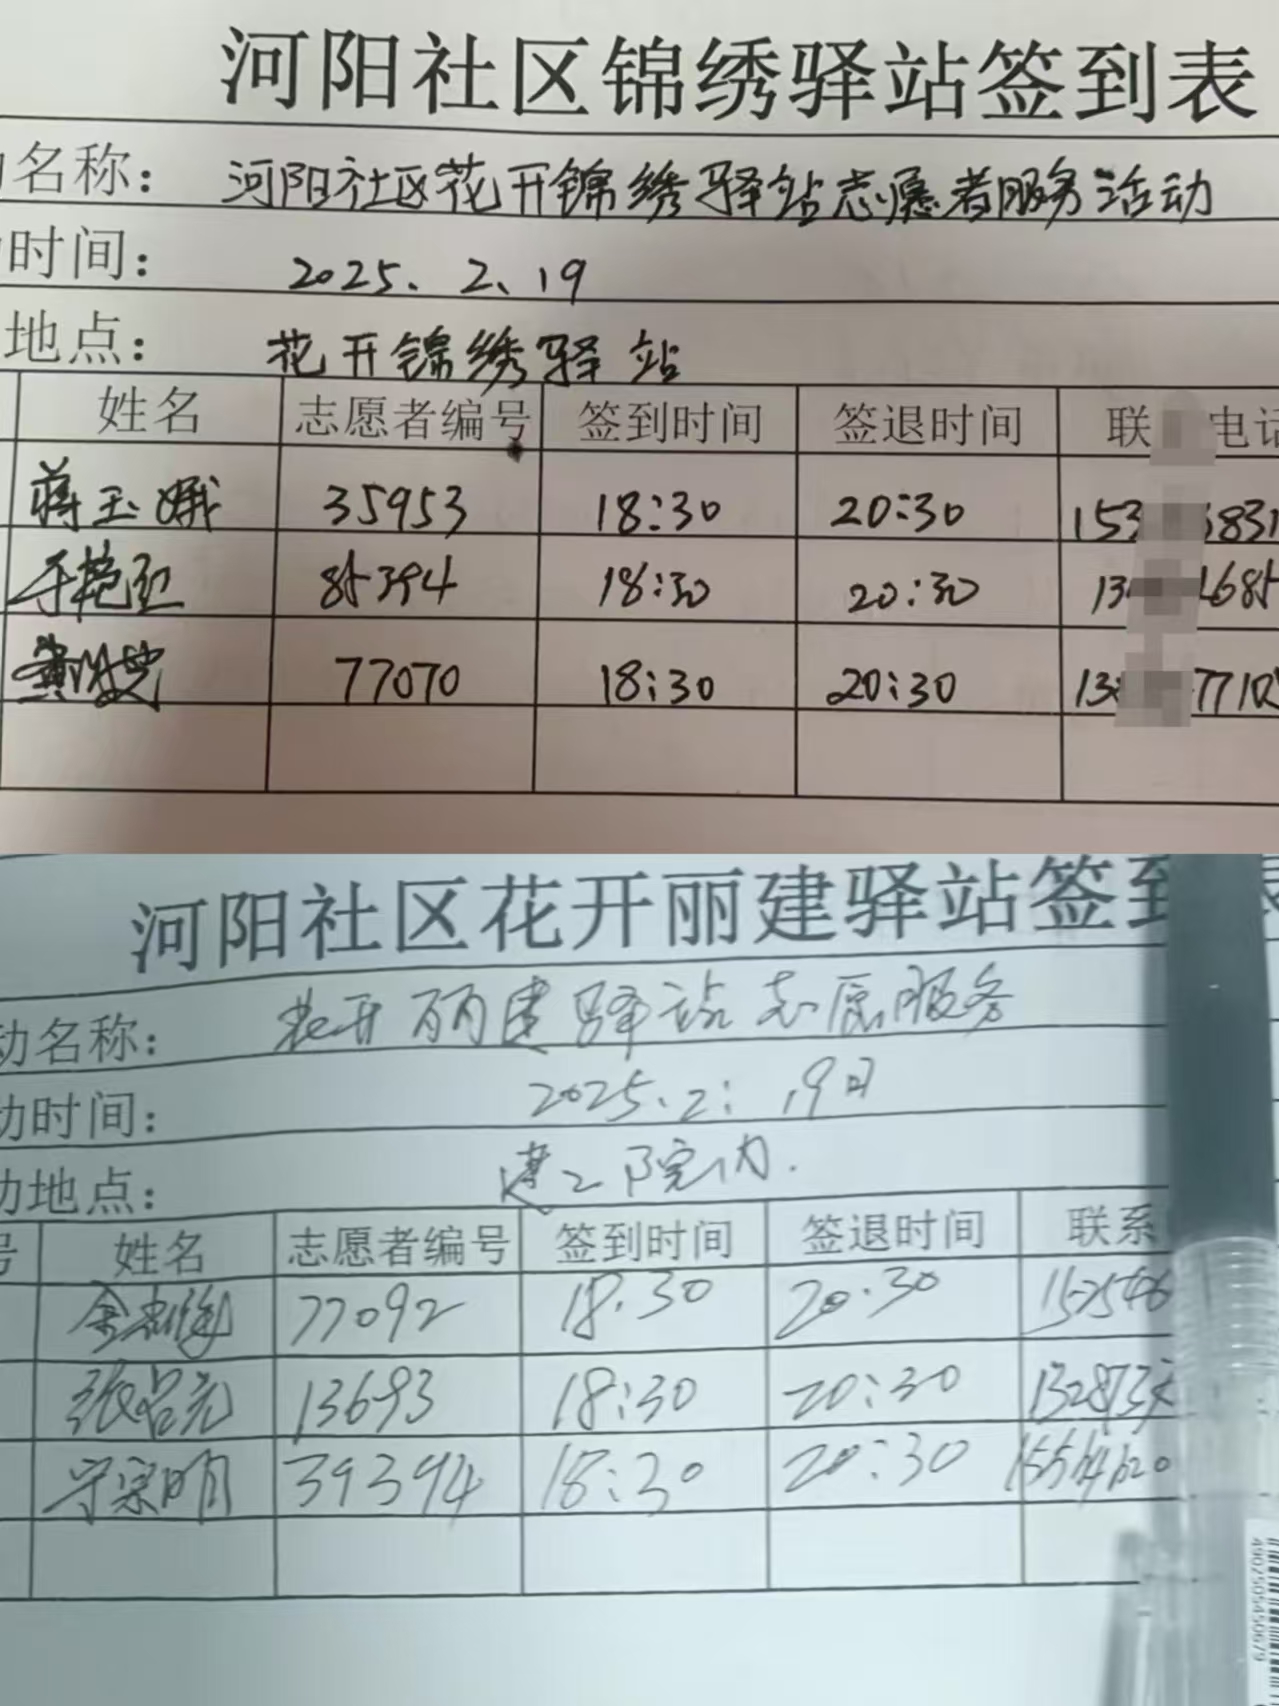 河阳社区锦绣驿站签到表
名称：河阳社区花开锦绣驿站志愿者服务活动
时间：2025.2.19
地点：花开锦绣驿站
姓名 志愿者编号 签到时间 签退时间 联 电话
蒋玉娥 35953 18:30 20:30 153 6831
于艳红 85394 18:30 20:30 13 1685
77070 18:30 20:30 13 7710
河阳社区花开丽建驿站签到表
动名称：花开丽建驿站志愿服务
动时间：2025.2.19日
动地点：建工院内.
号 姓名 志愿者编号 签到时间 签退时间 联系
77092 18:30 20:30 152546
张吕元 13693 18:30 20:30 132873
宁宗明 39394 18:30 20:30 15564620
4902505450679